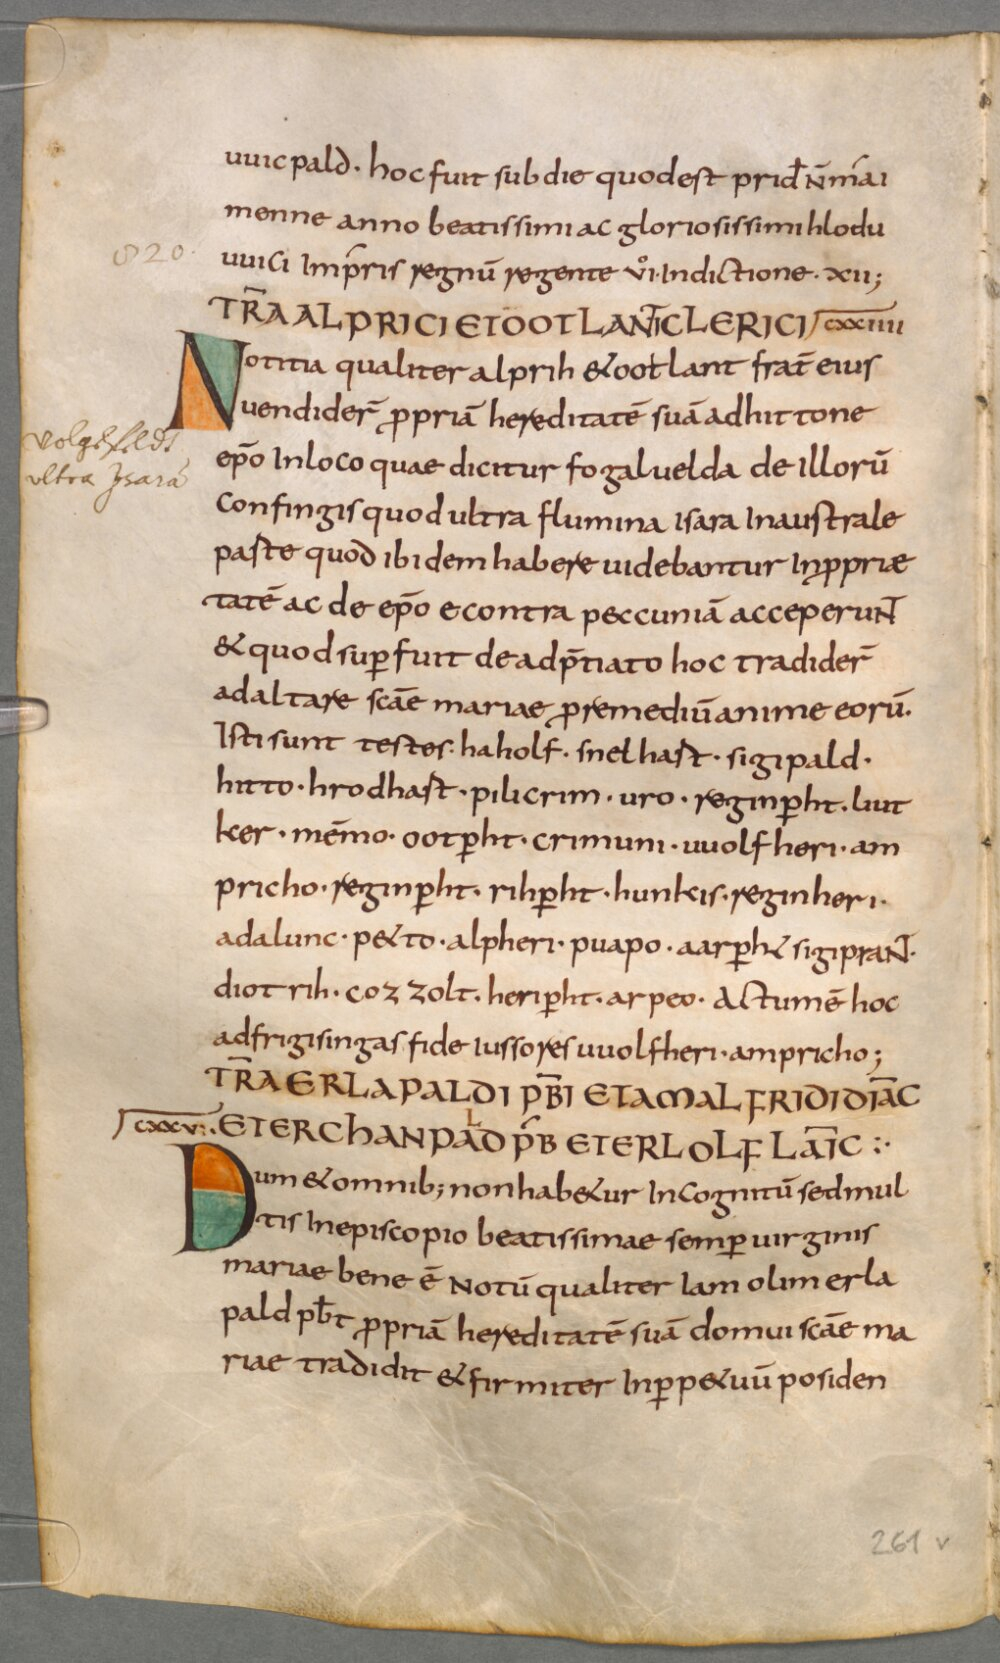 uuicpald· hoc fuit sub die quod est prid̄ N̄ mai
menne anno beatissimi ac gloriosissimi hlodu
820
uuici Imp̄ris regnū regente vi Indictione· xii;
TR̄A ALPRICI ET OOTLANT̄ CLERICI cxxiiii
Notitia qualiter alprih & ootlant frat̄ eius
uendider̄ ꝓpriā hereditatē suā ad hittone
volgefeldt
ultra Jsarā
ep̄o In loco quae dicitur fogaluelda de Illorū
confingis quod ultra flumina isara In australe
paste quod ibidem habere uidebantur In ꝓpriæ
tatē ac de ep̄o econtra peccuniā acceperuN̄
& quod suꝑfuit de adp̄tiato hoc tradider̄
ad altare sc̄ae mariae ꝓ remediū anime eorū·
Isti sunt testes· haholf· snelhast· sigipald·
hitto· hrodhast· pilicrim· uro· reginꝑht· liut
ker· mēmo· ootꝑht· crimuni· uuolfheri· am
pricho· reginꝑht· rihꝑht· hunkis· reginheri·
adalunc· p&to· alpheri· puapo· aarꝑh& sigipraN̄·
diotrih· cozzolt· heriꝑht· arpeo· Actum ē hoc
ad frigisingas fideiussores uuolfheri· ampricho;
TR̄A ERLAPALDI PB̄I ET AMALFRIDI DIAC̄
cxxv· ET ERCHANPALD PR̄B ET ERLOLF LAIC̄ :·
Dum & omnib; non hab&ur Incognitū sed mul
tis In episcopio beatissimae semꝑ uirginis
mariae bene ē Notū qualiter Iam olim erla
pald pb̄t ꝓpriā hereditatē suā domui sc̄ae ma
riae tradidit & firmiter In ꝑp&uū posiden
261 v